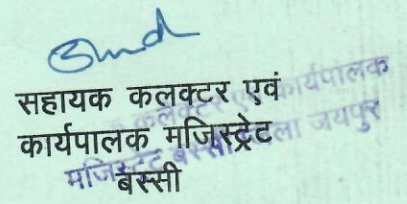 सहायक कलक्टर एवं
कार्यपालक मजिस्ट्रेट
बस्सी
कलक्टर एवं कार्यपालक
मजिस्ट्रेट बस्सी जिला जयपुर